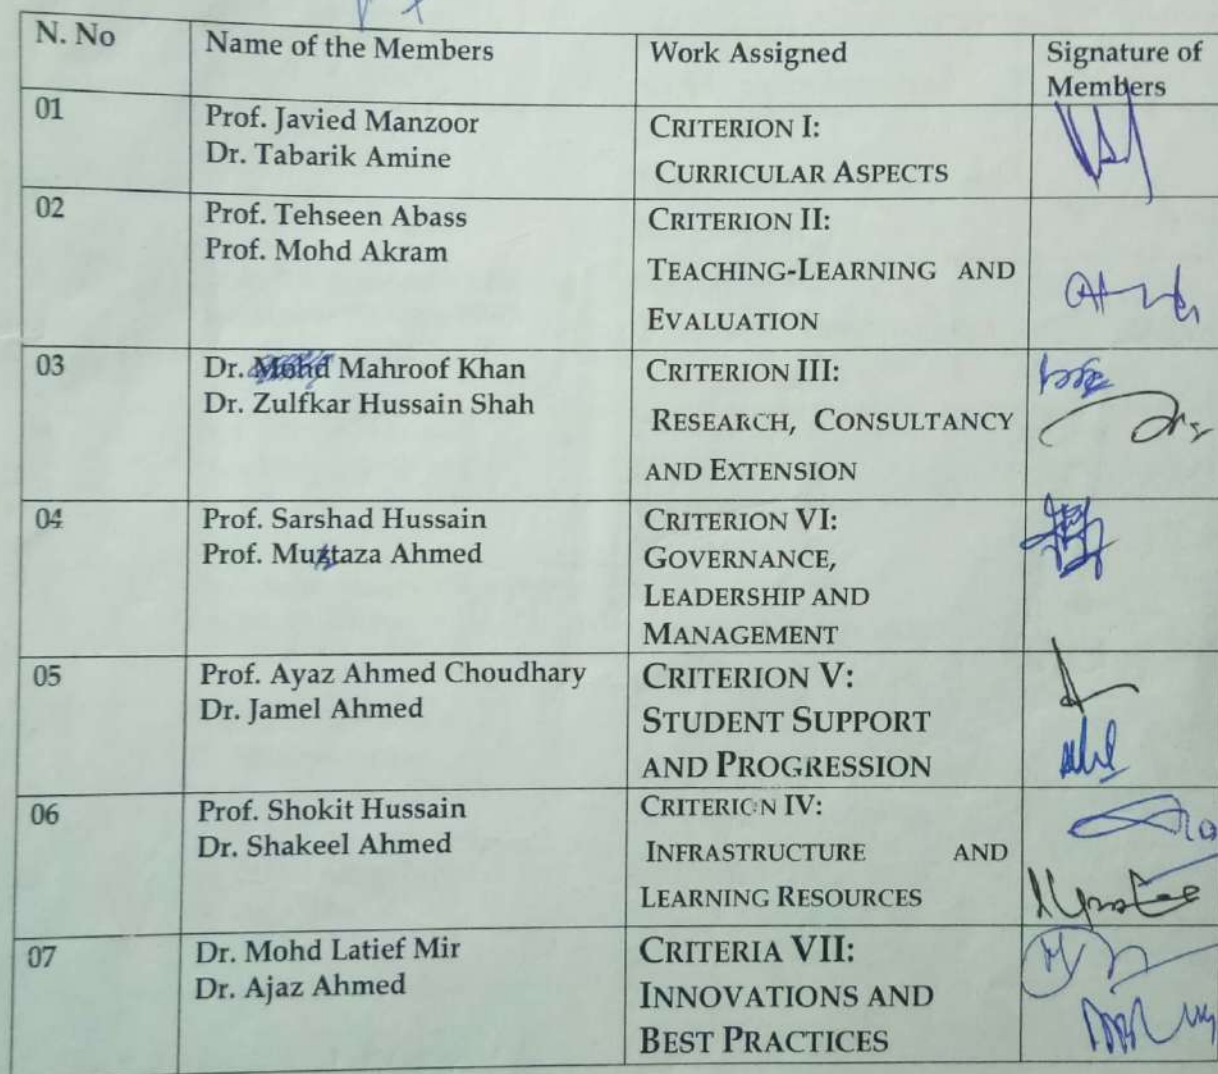 N. No
Name of the Members
Work Assigned
Signature of
Members
01
Prof. Javied Manzoor
Dr. Tabarik Amine
CRITERION I:
CURRICULAR ASPECTS
02
Prof. Tehseen Abass
Prof. Mohd Akram
CRITERION II:
TEACHING-LEARNING AND
EVALUATION
03
Dr. Mohd Mahroof Khan
Dr. Zulfkar Hussain Shah
CRITERION III:
RESEARCH, CONSULTANCY
AND EXTENSION
04
Prof. Sarshad Hussain
Prof. Murtaza Ahmed
CRITERION VI:
GOVERNANCE,
LEADERSHIP AND
MANAGEMENT
05
Prof. Ayaz Ahmed Choudhary
Dr. Jamel Ahmed
CRITERION V:
STUDENT SUPPORT
AND PROGRESSION
06
Prof. Shokit Hussain
Dr. Shakeel Ahmed
CRITERION IV:
INFRASTRUCTURE AND
LEARNING RESOURCES
07
Dr. Mohd Latief Mir
Dr. Ajaz Ahmed
CRITERIA VII:
INNOVATIONS AND
BEST PRACTICES